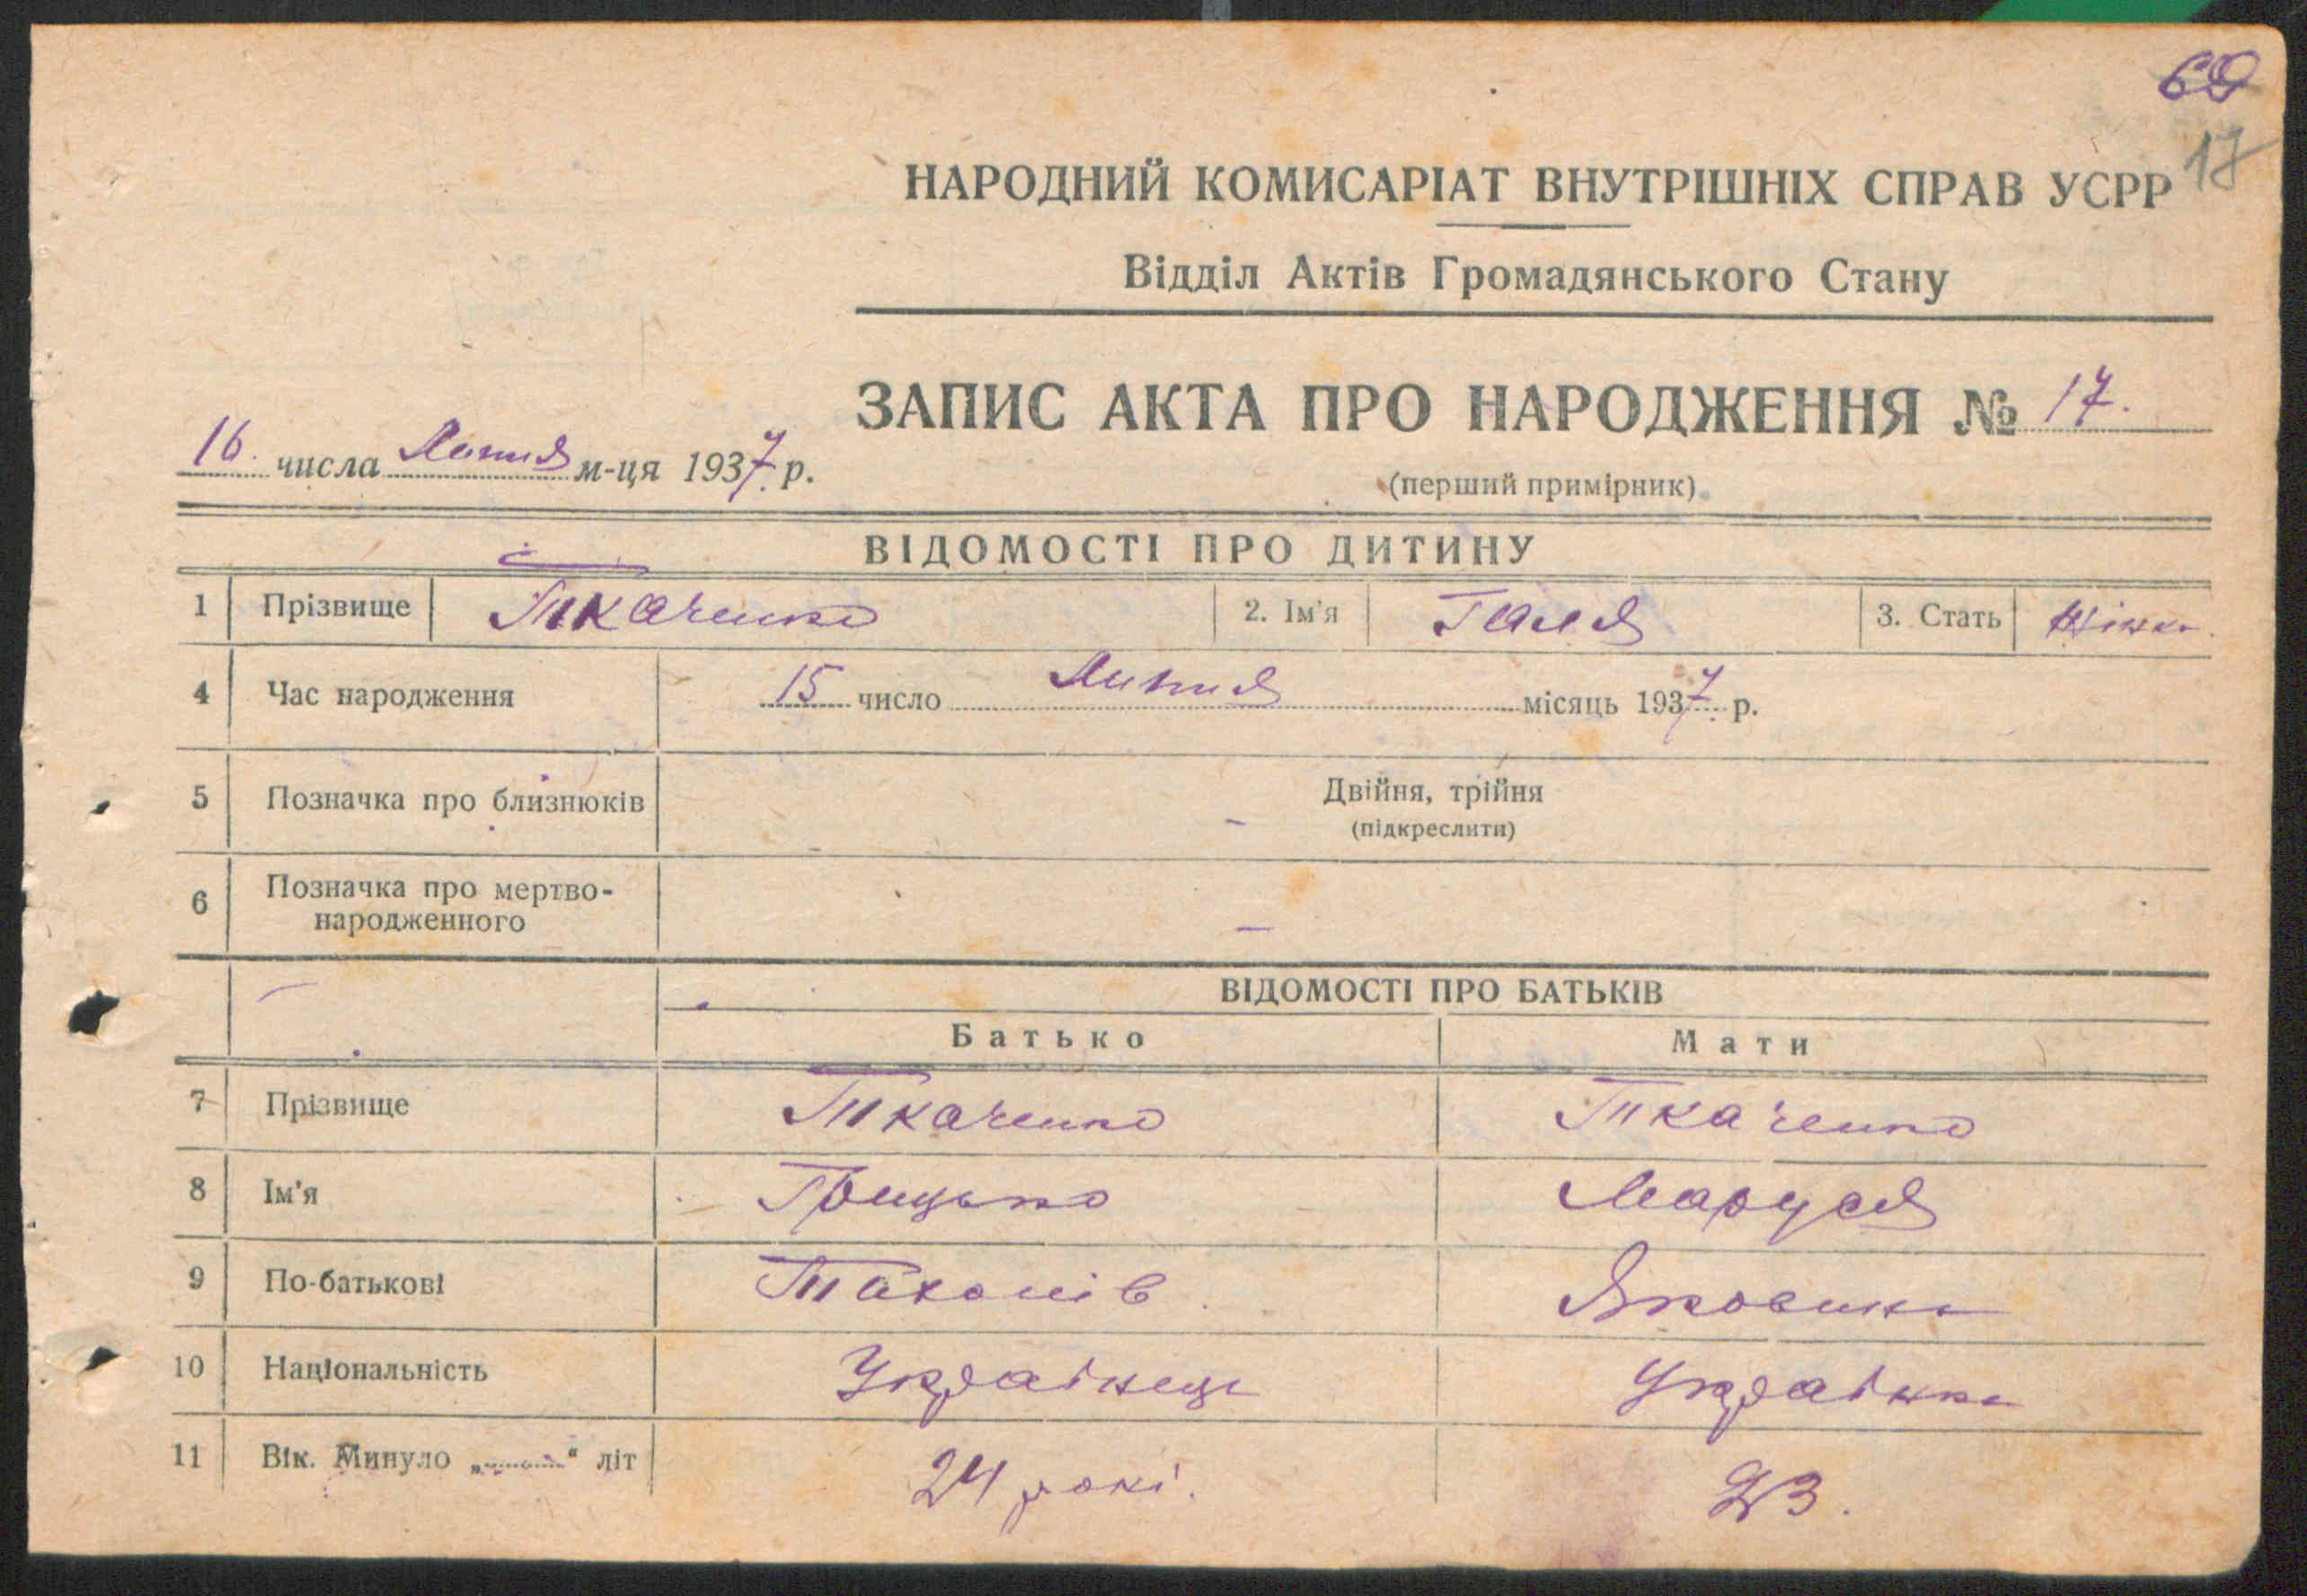 69
17
НАРОДНИЙ КОМИСАРІАТ ВНУТРІШНІХ СПРАВ УСРР
Відділ Актів Громадянського Стану
ЗАПИС АКТА ПРО НАРОДЖЕННЯ № 17.
16. числа Липня м-ця 1937 р.
(перший примірник)
ВІДОМОСТІ ПРО ДИТИНУ
1 Прізвище Ткаченко 2. Ім'я Галя 3. Стать Жінка
4 Час народження 15 число Липня місяць 1937 р.
5 Позначка про близнюків – Двійня, трійня
(підкреслити)
6 Позначка про мертво-
народженного –
ВІДОМОСТІ ПРО БАТЬКІВ
Батько Мати
7 Прізвище Ткаченко Ткаченко
8 Ім'я Грицько Маруся
9 По-батькові Яковина
10 Національність Українець Українка
11 Вік. Минуло „......" літ 24 рокі. 23.